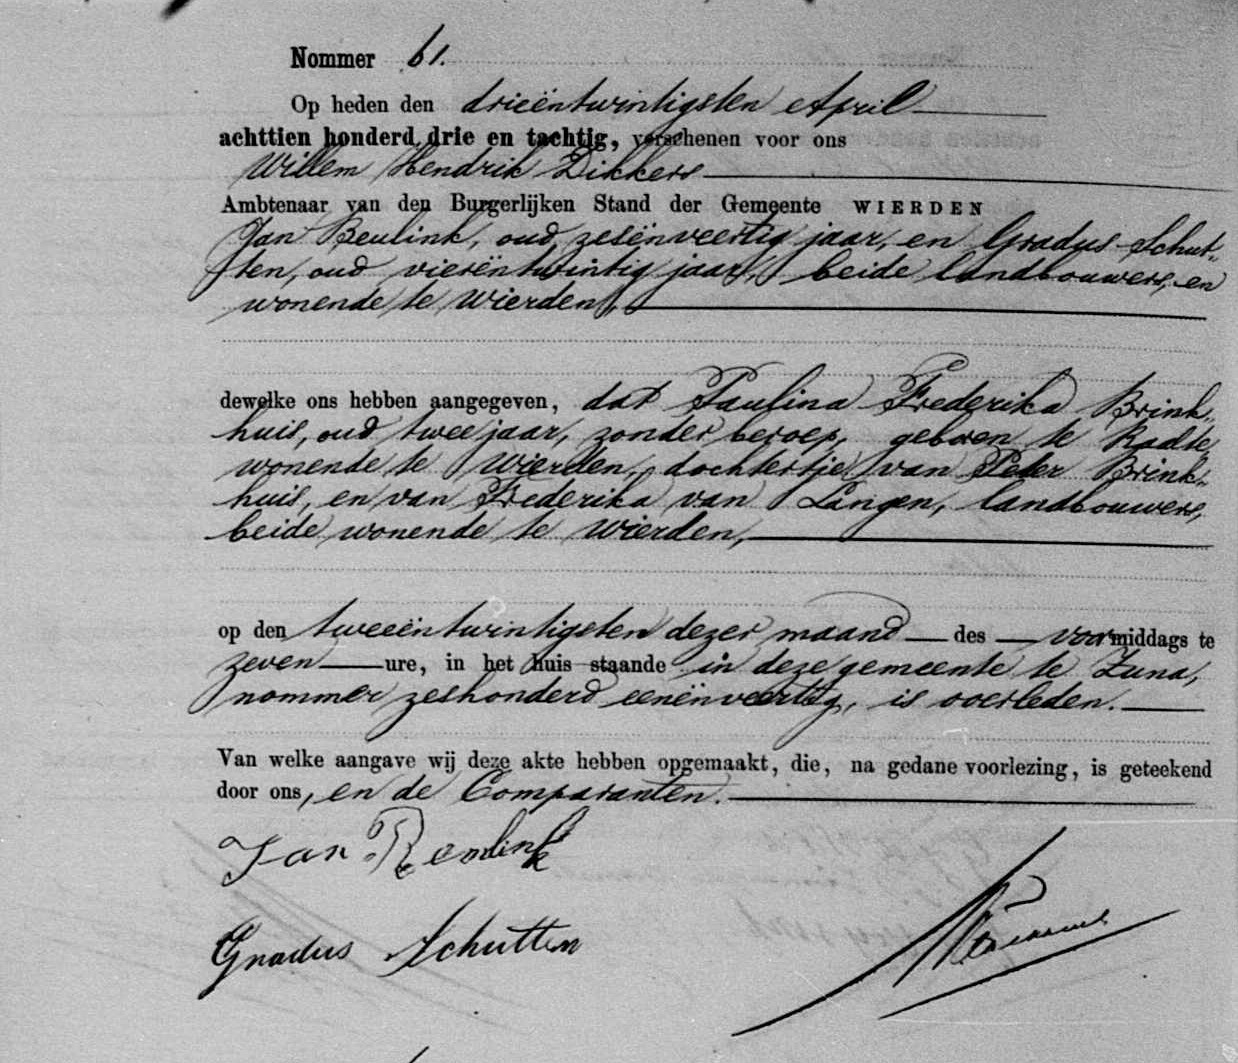 Nommer 61.
Op heden den drieëntwintigsten April
achttien honderd drie en tachtig, verschenen voor ons
Willem Hendrik Dikkers
Ambtenaar van den Burgerlijken Stand der Gemeente WIERDEN
Jan Beulink, oud zesënveertig jaar, en Gradus Schut-
ten, oud vierëntwintig jaar, beide landbouwers, en
wonende te Wierden,
dewelke ons hebben aangegeven, dat Paulina Frederika Brink-
huis, oud twee jaar, zonder beroep, geboren te Raalte,
wonende te Wierden, dochtertje van Peter Brink-
huis, en van Frederika van Langen, landbouwers,
beide wonende te Wierden,
op den tweeëntwintigsten dezer maand des voormiddags te
zeven ure, in het huis staande in deze gemeente te Zuna,
nommer zeshonderd eenënveertig, is overleden.
Van welke aangave wij deze akte hebben opgemaakt, die, na gedane voorlezing, is geteekend
door ons, en de Comparanten.
Jan Beulink
Gradus Schutten